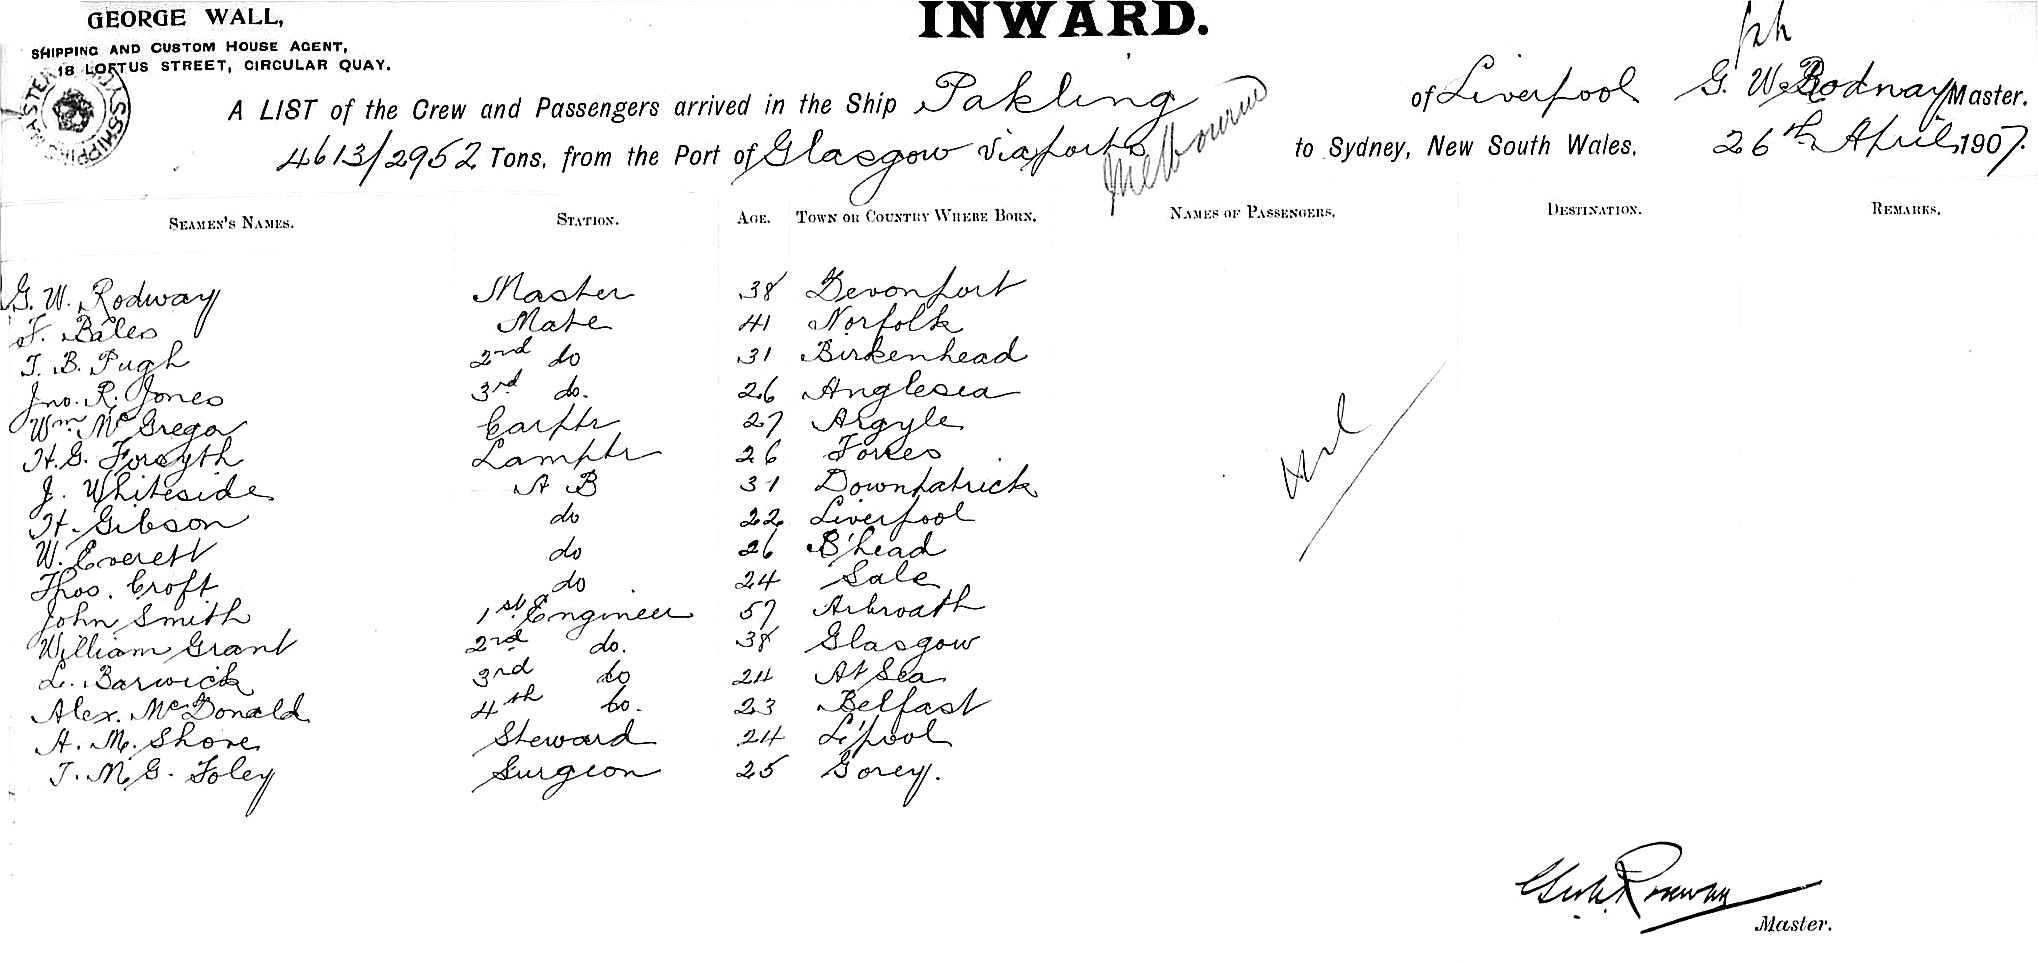 GEORGE WALL,
SHIPPING AND CUSTOM HOUSE AGENT,
18 LOFTUS STREET, CIRCULAR QUAY.
INWARD.
A LIST of the Crew and Passengers arrived in the Ship Pakling of Liverpool G. W. Rodway Master.
4613/2952 Tons, from the Port of Glasgow via ports Melbourne to Sydney, New South Wales, 26th April 1907.
SEAMEN'S NAMES. STATION. AGE. TOWN OR COUNTRY WHERE BORN. NAMES OF PASSENGERS. DESTINATION. REMARKS.
G. W. Rodway Master 38 Devonport
F. Bales Mate 41 Norfolk
T. B. Pugh 2nd do 31 Birkenhead
Jno. R. Jones 3rd do. 26 Anglesea
Wm McGrego Carptr 27 Argyle
H. G. Forsyth Lamptr 26 Forres
J. Whiteside A B 31 Downpatrick
H. Gibson do 22 Liverpool
W. Everett do 26 B'head
Thos. Croft do 24 Sale
John Smith 1st Engineer 57 Arbroath
William Grant 2nd do. 38 Glasgow
L. Barwick 3rd do 24 At Sea
Alex. McDonald 4th do. 23 Belfast
A. M. Shore Steward 24 L'pool
T. M. G. Foley Surgeon 25 Gorey.
Nil
Master.